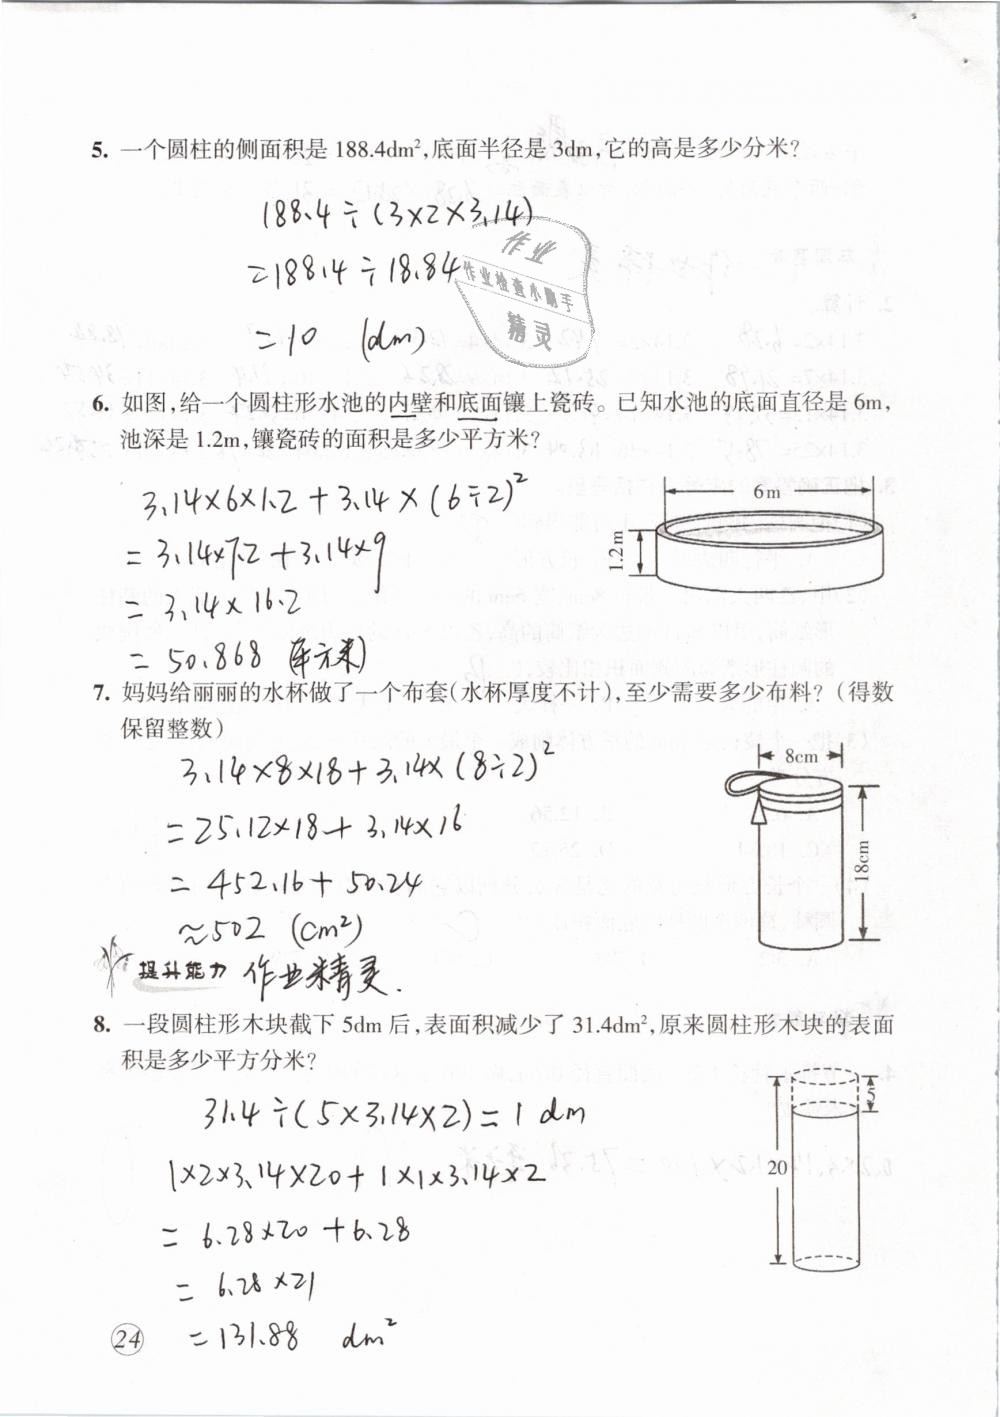 5. 一个圆柱的侧面积是 188.4dm²,底面半径是 3dm,它的高是多少分米?
188.4÷(3×2×3.14)
=188.4÷18.84
=10 (dm)
作业
作业检查小助手
精灵
6. 如图,给一个圆柱形水池的内壁和底面镶上瓷砖。已知水池的底面直径是 6m,
池深是 1.2m,镶瓷砖的面积是多少平方米?
3.14×6×1.2+3.14×(6÷2)²
=3.14×7.2+3.14×9
=3.14×16.2
=50.868 (平方米)
6m
1.2m
7. 妈妈给丽丽的水杯做了一个布套(水杯厚度不计),至少需要多少布料?(得数
保留整数)
3.14×8×18+3.14×(8÷2)²
=25.12×18+3.14×16
=452.16+50.24
≈502 (cm²)
8cm
18cm
提升能力 作业精灵.
8. 一段圆柱形木块截下 5dm 后,表面积减少了 31.4dm²,原来圆柱形木块的表面
积是多少平方分米?
31.4÷(5×3.14×2)=1 dm
1×2×3.14×20+1×1×3.14×2
=6.28×20+6.28
=6.28×21
=131.88 dm²
5
20
24